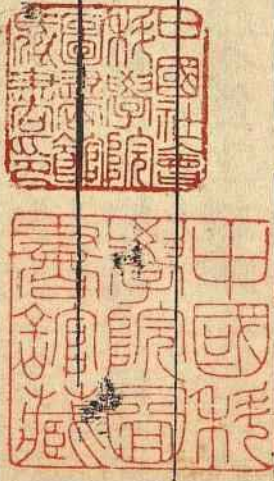 中國社會
科學院
圖書館
藏書之印
中國科
學院圖
書館藏